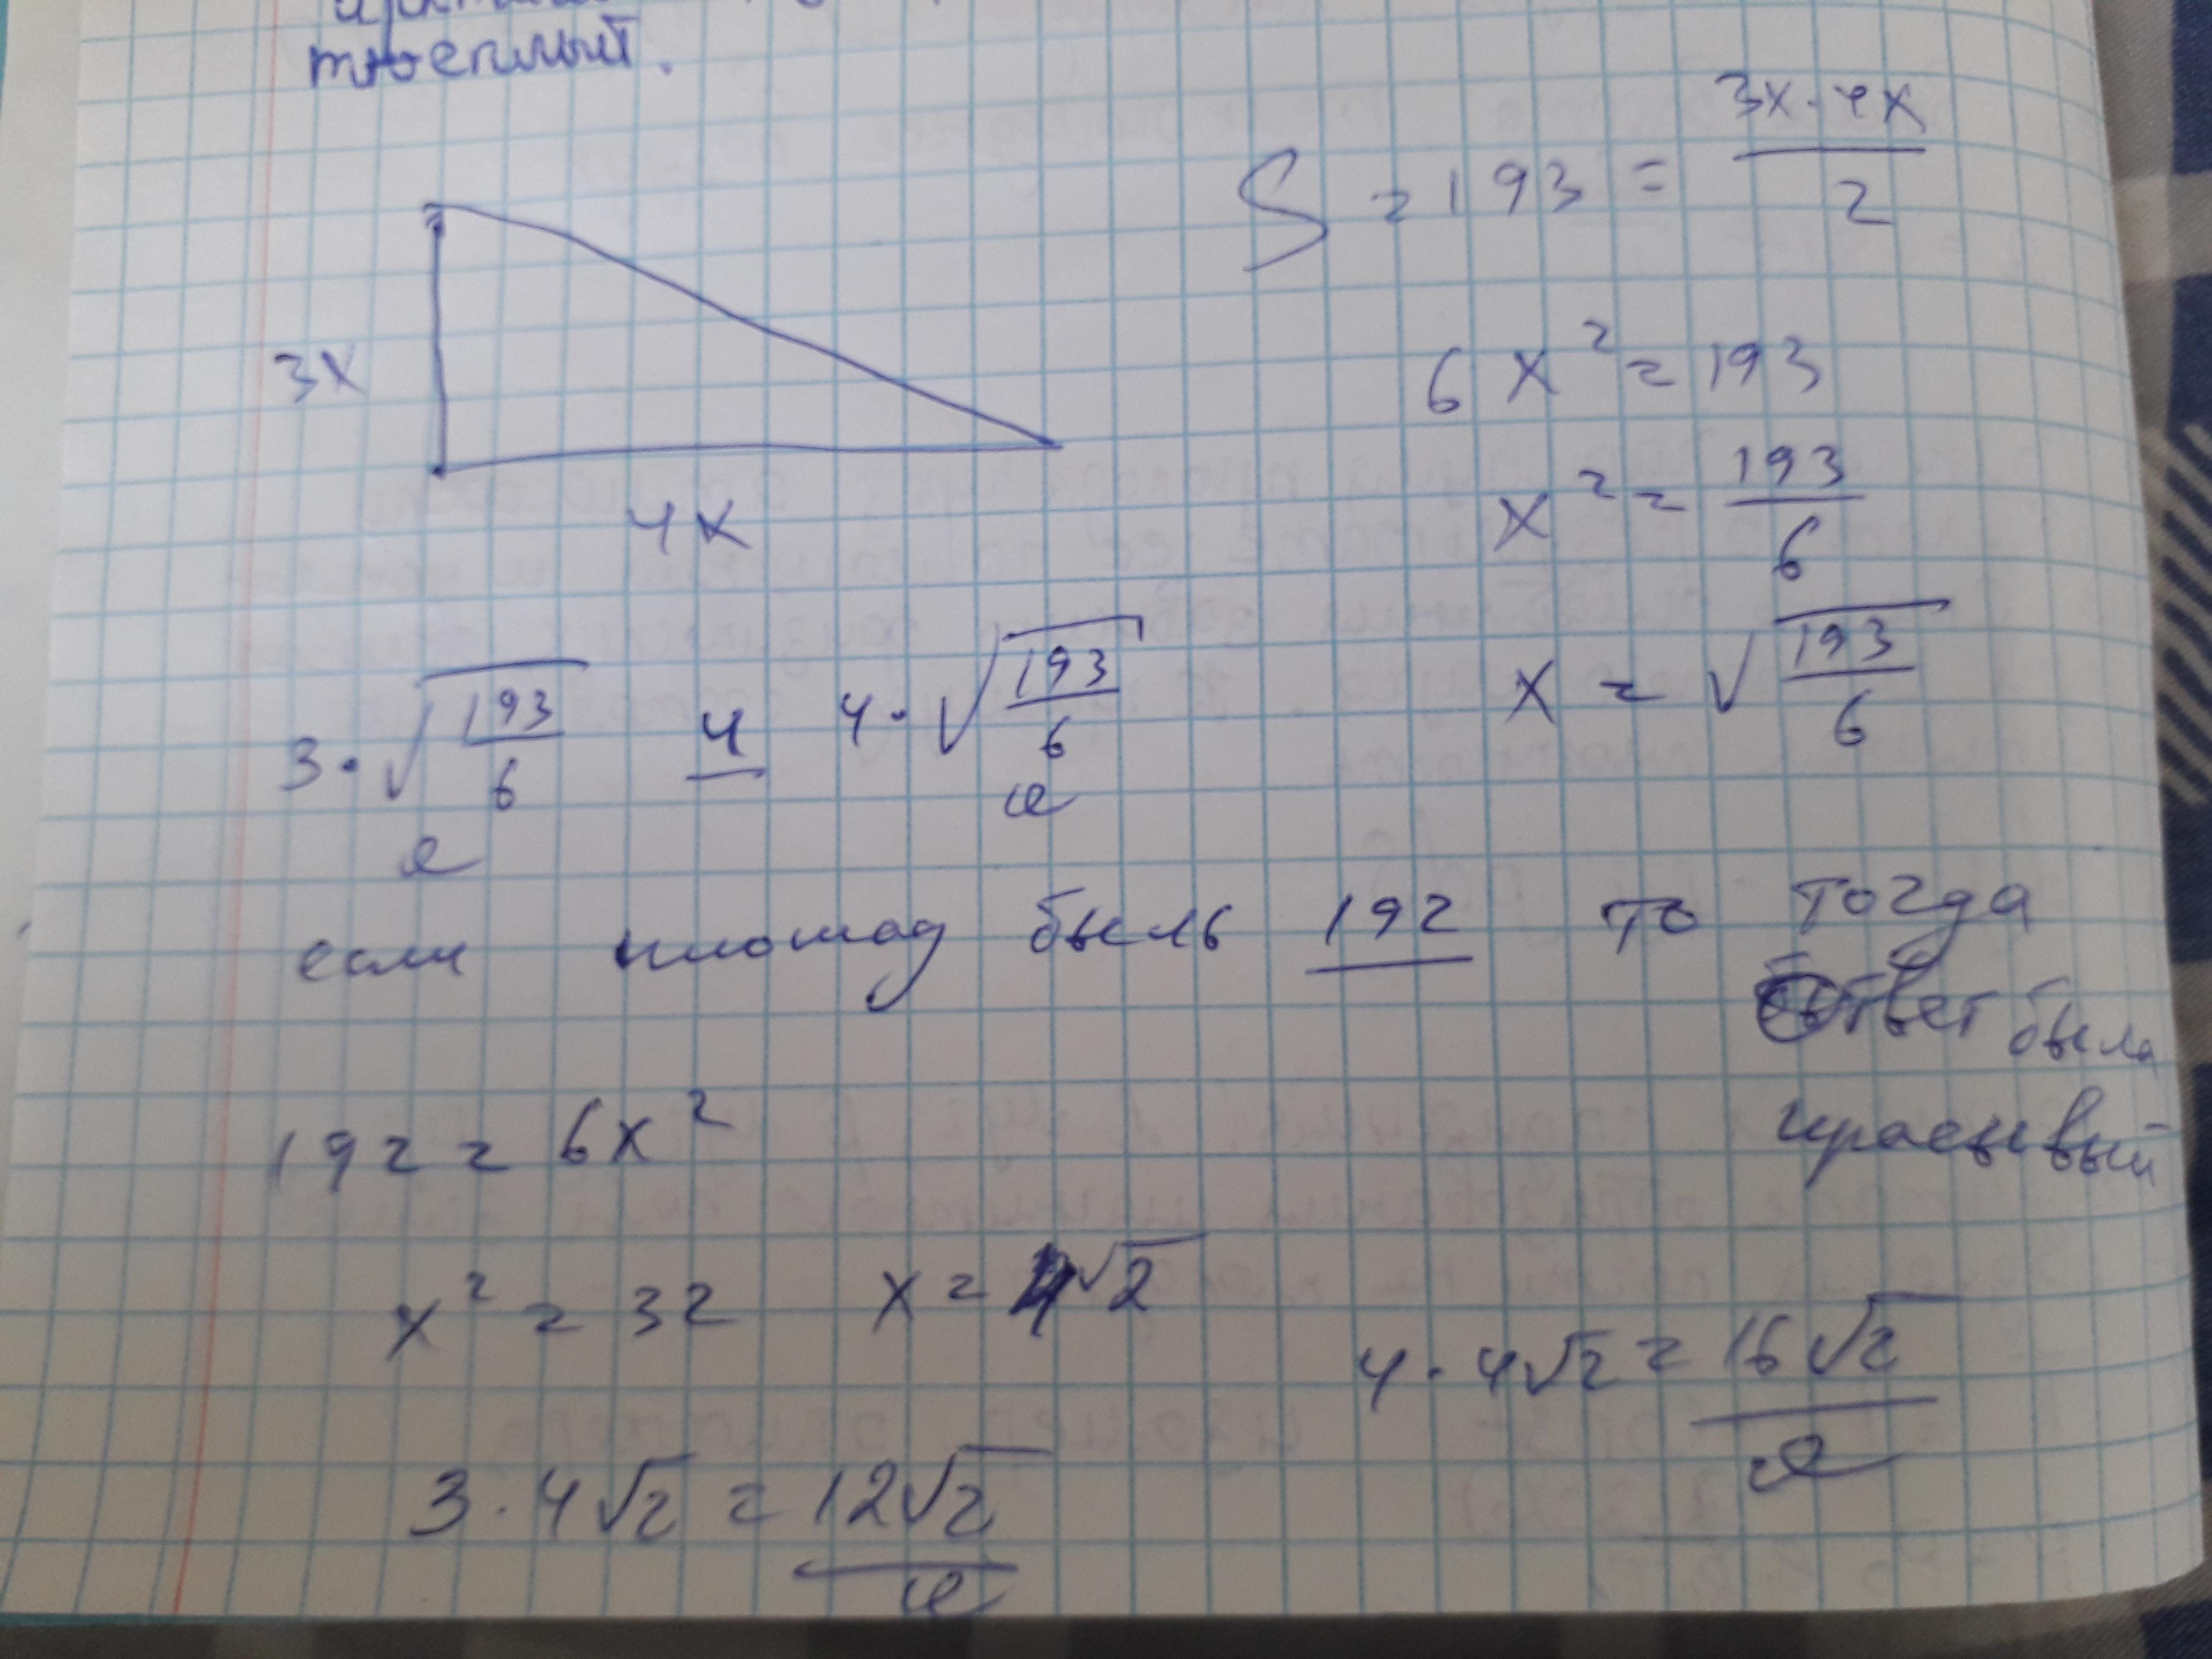 S = 193 = 3x · 4x / 2
3x
4x
6x² = 193
x² = 193/6
x = √(193/6)
3 · √(193/6) и 4 · √(193/6)
если площад быль 192 то тогда
ответ была
красывый
192 = 6x²
x² = 32 x = 4√2
4 · 4√2 = 16√2
3 · 4√2 = 12√2